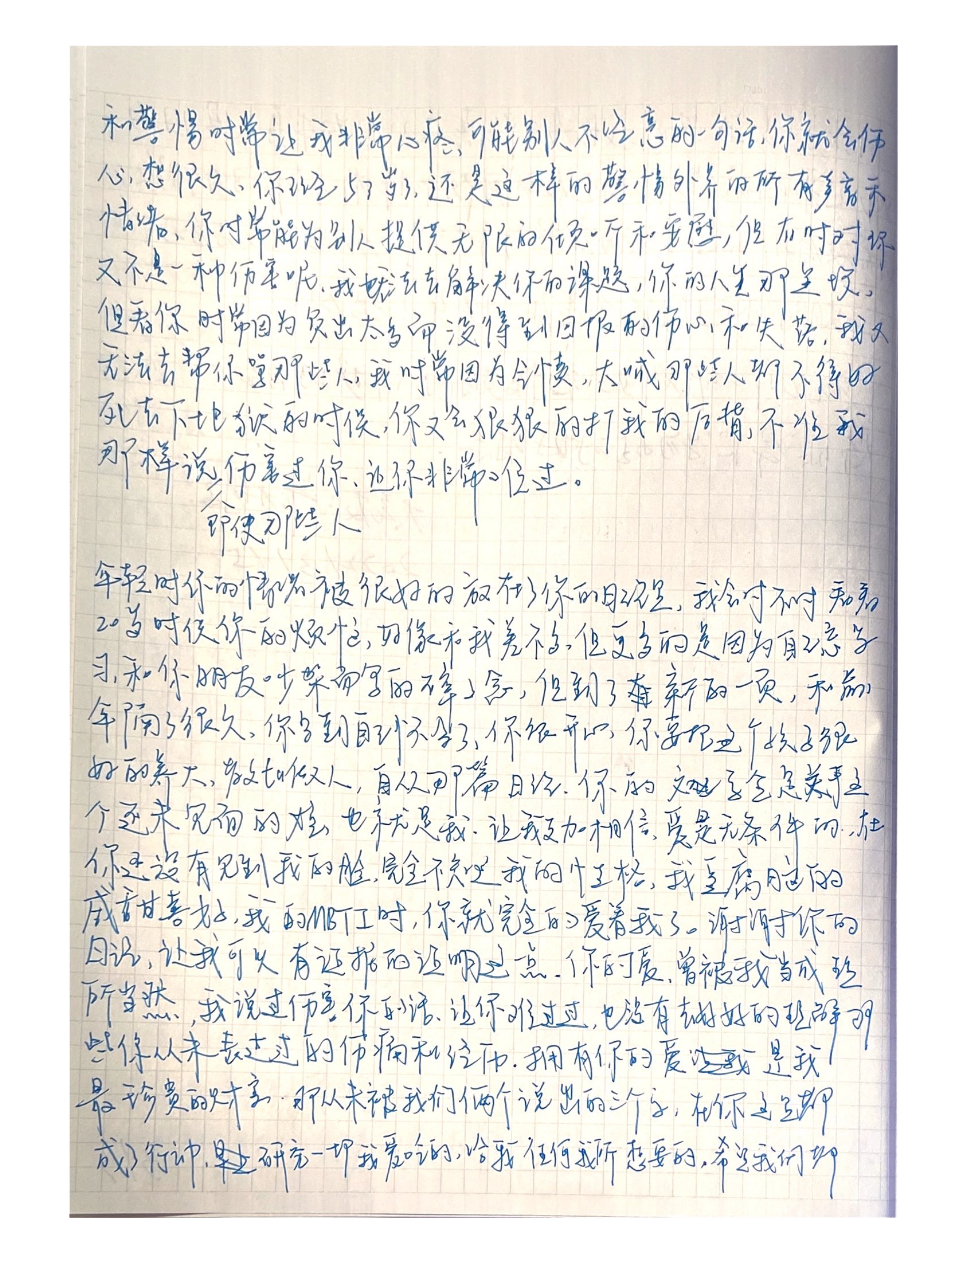 和警惕时常让我非常心疼，可能别人不经意的一句话，你就会伤
心，想很久，你已经57岁了，还是这样的警惕外界的所有声音和
情绪，你时常能为别人提供无限的倾听和安慰，但有时对你
又不是一种伤害呢，我无法去解决你的课题，你的人生那些坎，
但看你时常因为负出太多而没得到回报的伤心和失落，我又
无法去帮你骂那些人，我时常因为气愤，大喊那些人都不得好
死去下地狱的时候，你又会狠狠的打我的后背，不准我
那样说，伤害过你、让你非常难过。
即使那些人
年轻时你的情绪被很好的放在了你的日记里，我会时不时翻翻
20多时候你的烦忙，好像和我差不多，但更多的是因为自己忘学
习，和你朋友吵架而写的碎碎念，但到了有新的一页，和前
年隔了很久，你写到自己怀孕了，你很开心，你要把这个孩子很
好的养大，教她做人，自从那篇日记，你的文字全是关于这
个还未见面的娃，也就是我，让我更加相信，爱是无条件的，在
你还没有见到我的脸，完全不知道我的性格，我豆腐脑的
咸甜喜好，我的MBTI时，你就完全的爱着我了。谢谢你的
日记，让我可以有证据的证明这一点，你的爱，曾被我当成理
所当然，我说过伤害你的话，让你难过过，也没有去好好的理解那
些你从未表达过的伤痛和经历，拥有你的爱是我
最珍贵的财富，那从未被我们俩个说出的三个字，在你这里都
成了行动，是研究一切我爱吃的，给我任何我所想要的，希望我们都